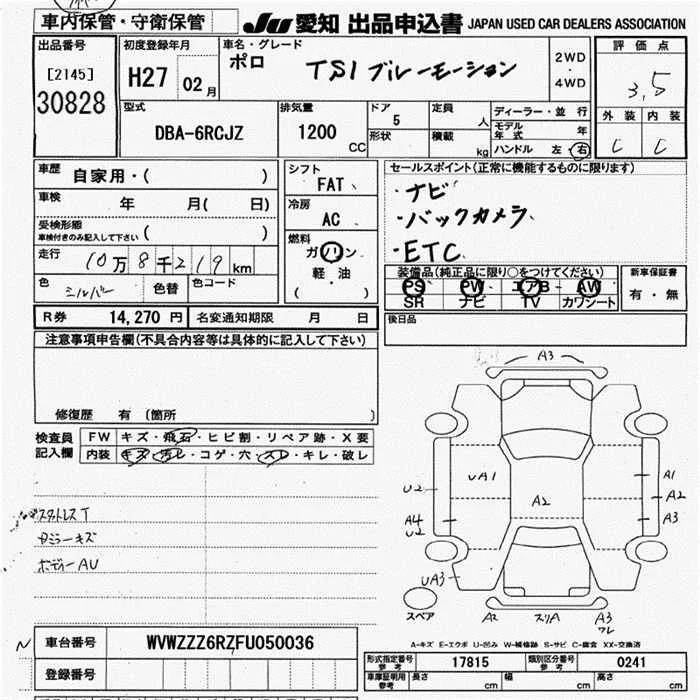 車内保管・守衛保管
JU 愛知 出品申込書 JAPAN USED CAR DEALERS ASSOCIATION
出品番号
[2145]
30828
初度登録年月
H27 02月
車名・グレード
ポロ TSI ブルーモーション
2WD
・
4WD
評価点
3.5
外装 内装
C C
型式
DBA-6RCJZ
排気量
1200 CC
ドア 5
形状
定員 人
積載 kg
ディーラー・並行
モデル年式 年
ハンドル 左 右
車歴
自家用・( )
車検 年 月( 日)
受検形態
車検付きのみ記入して下さい ( )
走行
10万8千219km
色 シルバー 色替 色コード
シフト
FAT
冷房
AC
燃料
ガソリン
軽・油
( )
セールスポイント(正常に機能するものに限ります)
・ナビ
・バックカメラ
・ETC
装備品(純正品に限り○をつけてください)
PS PW エアB AW
SR ナビ TV カワシート
新車保証書
有・無
R券 14,270 円 名変通知期限 月 日
後日品
注意事項申告欄(不具合内容等は具体的に記入して下さい)
修復歴 有 〔箇所 〕
検査員記入欄
FW キズ・飛石・ヒビ割・リペア跡・X要
内装 キズ・汚レ・コゲ・穴・スレ・キレ・破レ
スタットレスT
Dミラーキズ
ボディーAU
A3
UA1
A2
U2
A4
U2
UA3
A1
A2
A3
スペア
A2 スリA A3
ワレ
A-キズ E-エクボ U-凹み W-補修跡 S-サビ C-腐食 XX-交換済
N
車台番号 WVWZZZ6RZFU050036
登録番号
型式指定番号 参考 17815 類別区分番号 参考 0241
車庫証明用 参考 長さ cm 幅 cm 高さ cm